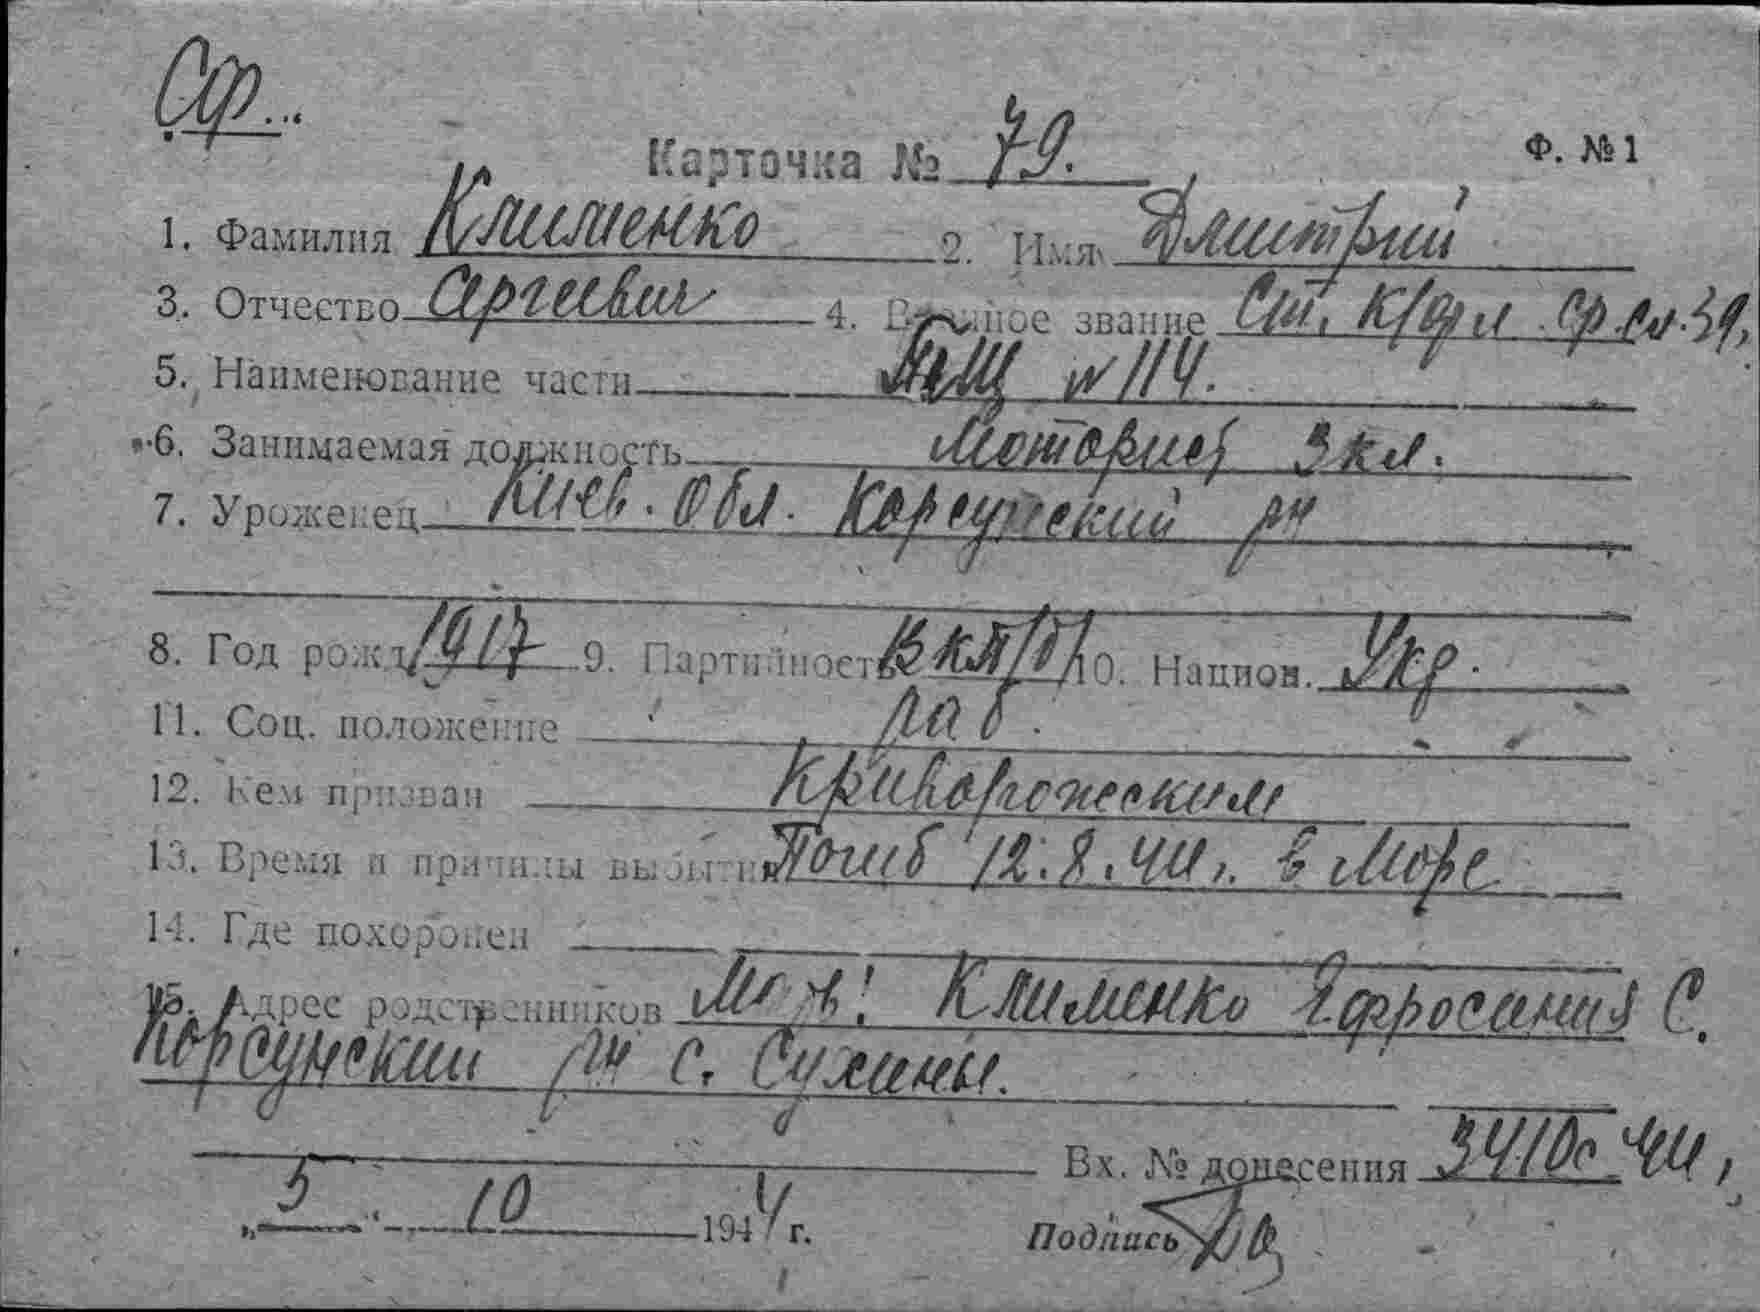 СФ...
Карточка № 79.
Ф. №1
1. Фамилия Клименко 2. Имя Дмитрий
3. Отчество Сергеевич 4. Военное звание Ст. к/фл ср. сл. 39,
5. Наименование части ТЩ № 114.
6. Занимаемая должность Моторист 3 кл.
7. Уроженец Киев. обл. Корсунский рн
8. Год рожд. 1917 9. Партийность ВКП/б/ 10. Национ. Укр.
11. Соц. положение раб.
12. Кем призван Криворожским
13. Время и причины выбытия Погиб 12.8.44 г. в море
14. Где похоронен
15. Адрес родственников М-ть: Клименко Ефросиния С.
Корсунский рн с. Сухины.
Вх. № донесения 3410с 44 г.
„ 5 " 10 1944 г.
Подпись